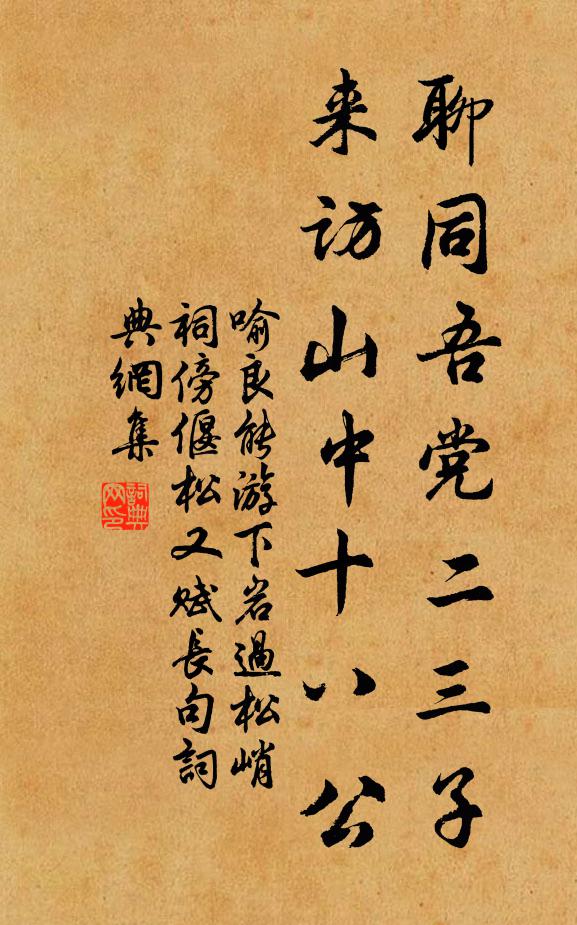 聊同吾党二三子
来访山中十八公
喻良能游下岩過松峭
祠傍偃松又赋長句詞
典網集
詞典
网印